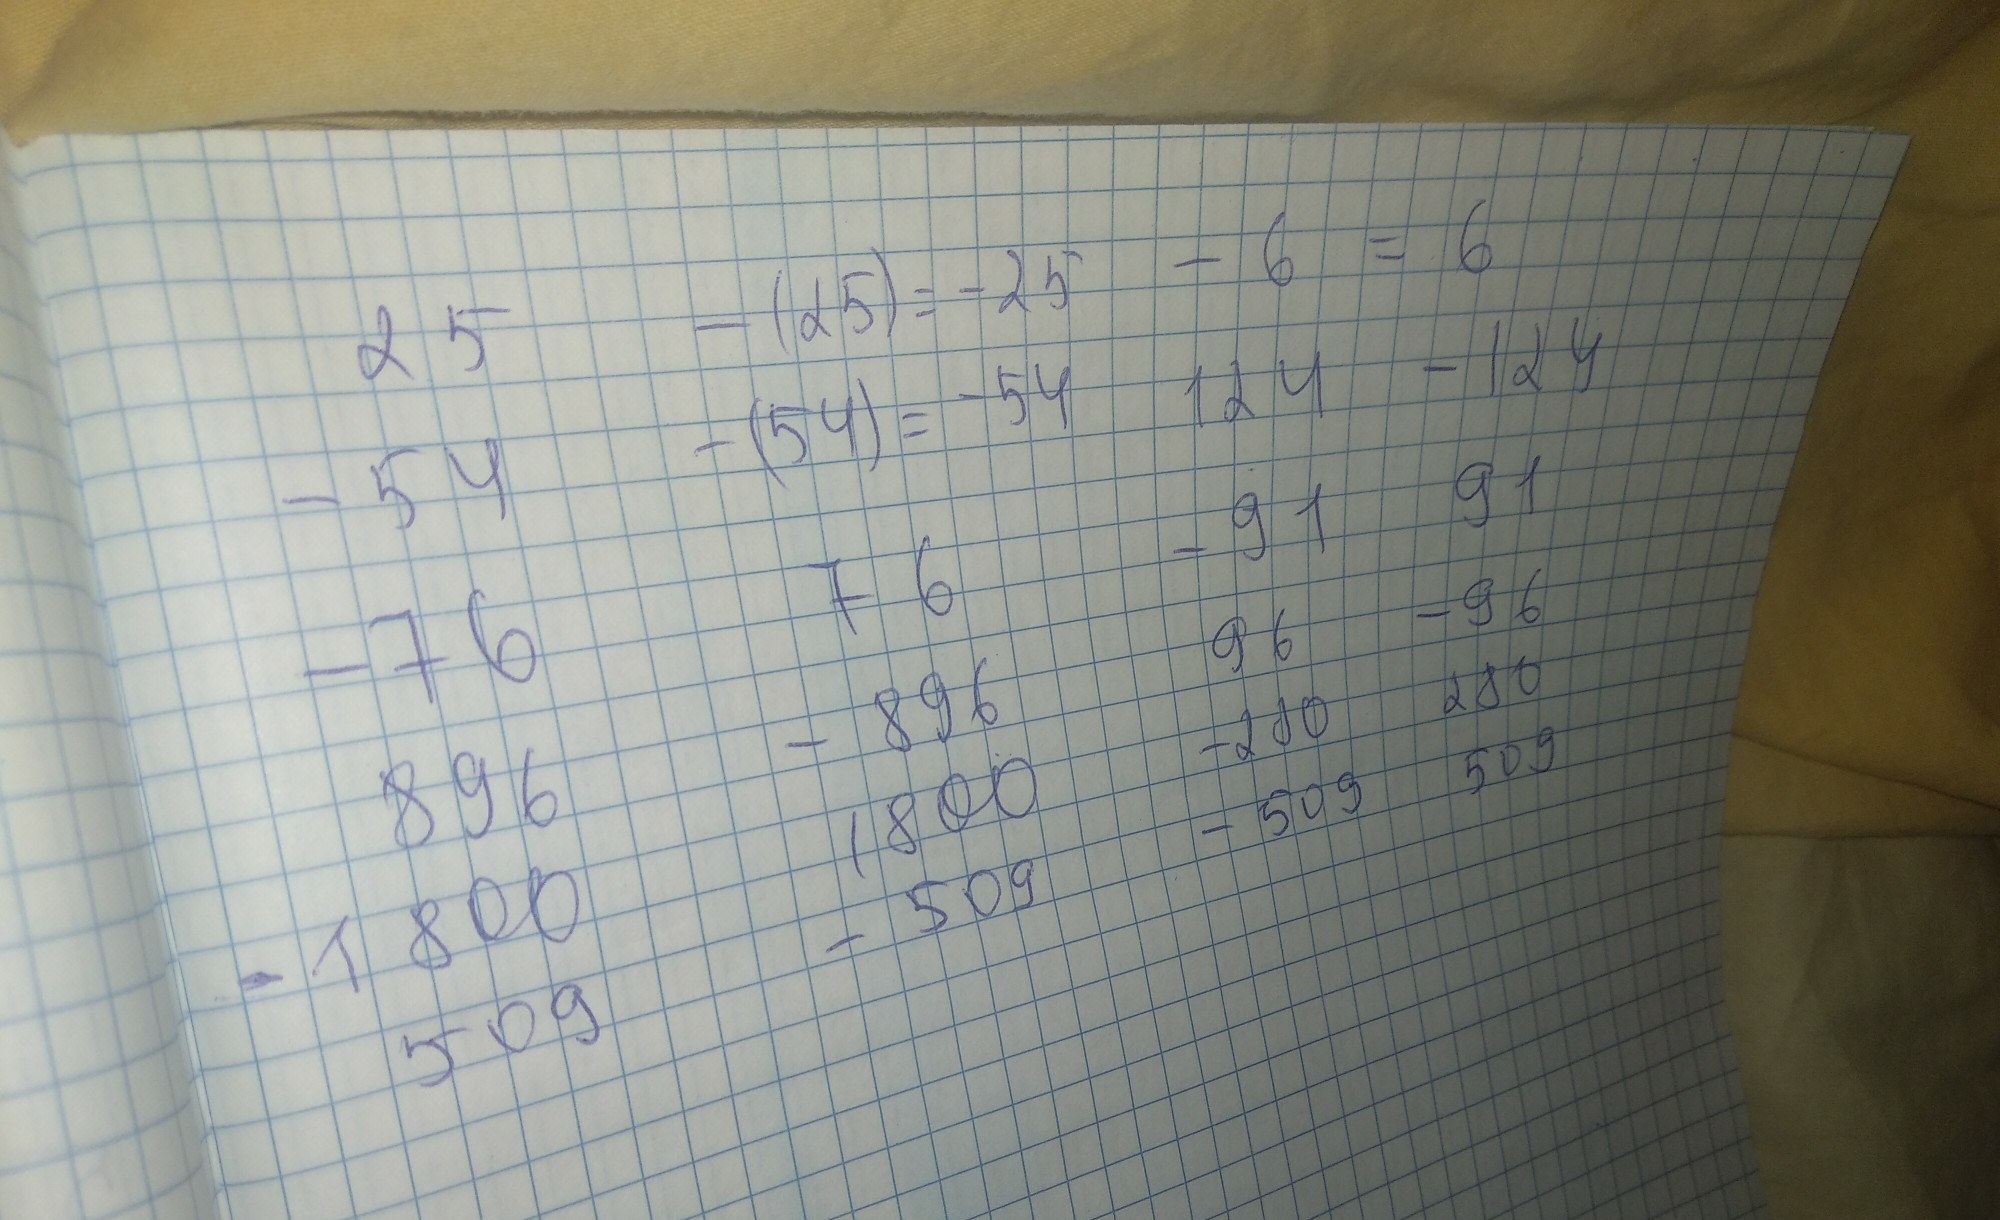 25 -(25)=-25 -6 = 6
-54 -(54)=-54 124 -124
-76 76 -91 91
896 -896 96 -96
-1800 1800 -280 280
509 -509 -509 509